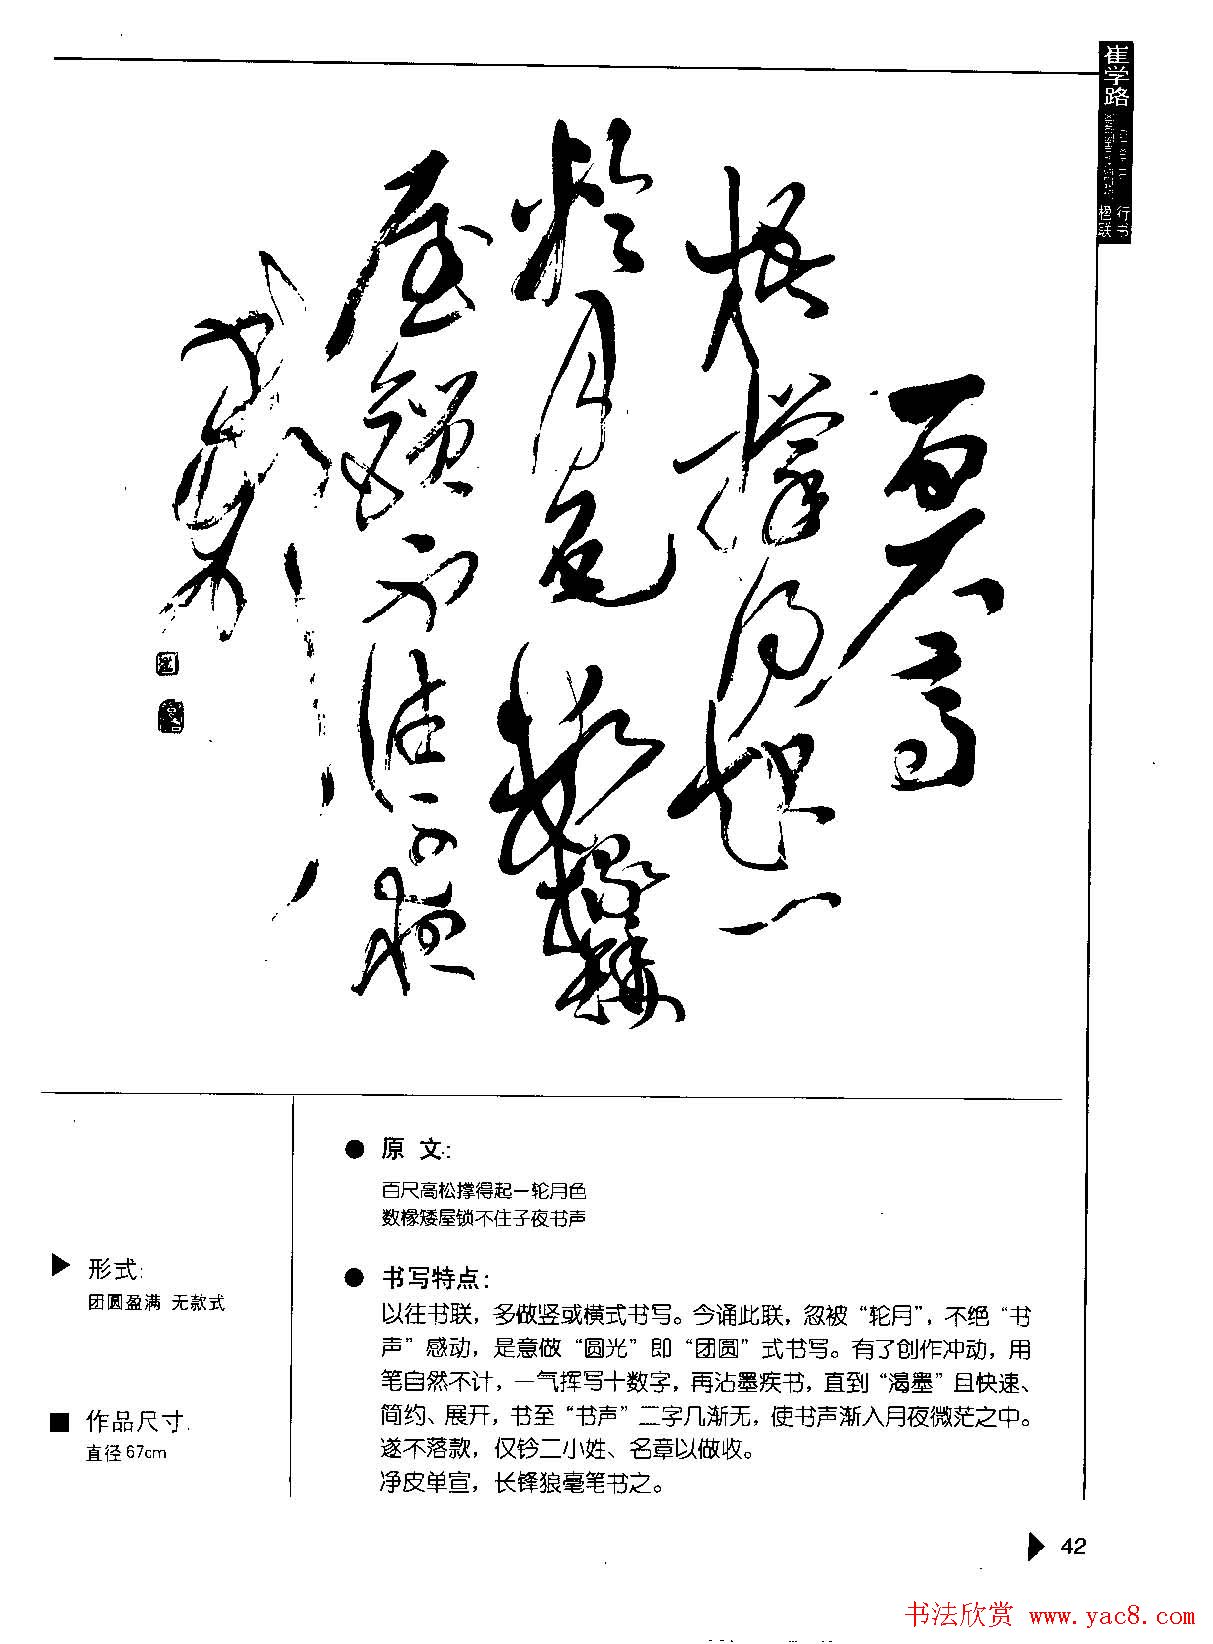 崔学路
行书
楹联
百尺高
松撑得起一
輪月色數椽矮
屋鎖不住子夜
書聲
● 原 文:
百尺高松撑得起一轮月色
数椽矮屋锁不住子夜书声
▶ 形式:
团圆盈满 无款式
■ 作品尺寸:
直径67cm
● 书写特点:
以往书联，多做竖或横式书写。今诵此联，忽被“轮月”，不绝“书
声”感动，是意做“圆光”即“团圆”式书写。有了创作冲动，用
笔自然不计，一气挥写十数字，再沾墨疾书，直到“渴墨”且快速、
简约、展开，书至“书声”二字几渐无，使书声渐入月夜微茫之中。
遂不落款，仅钤二小姓、名章以做收。
净皮单宣，长锋狼毫笔书之。
▶ 42
书法欣赏 www.yac8.com